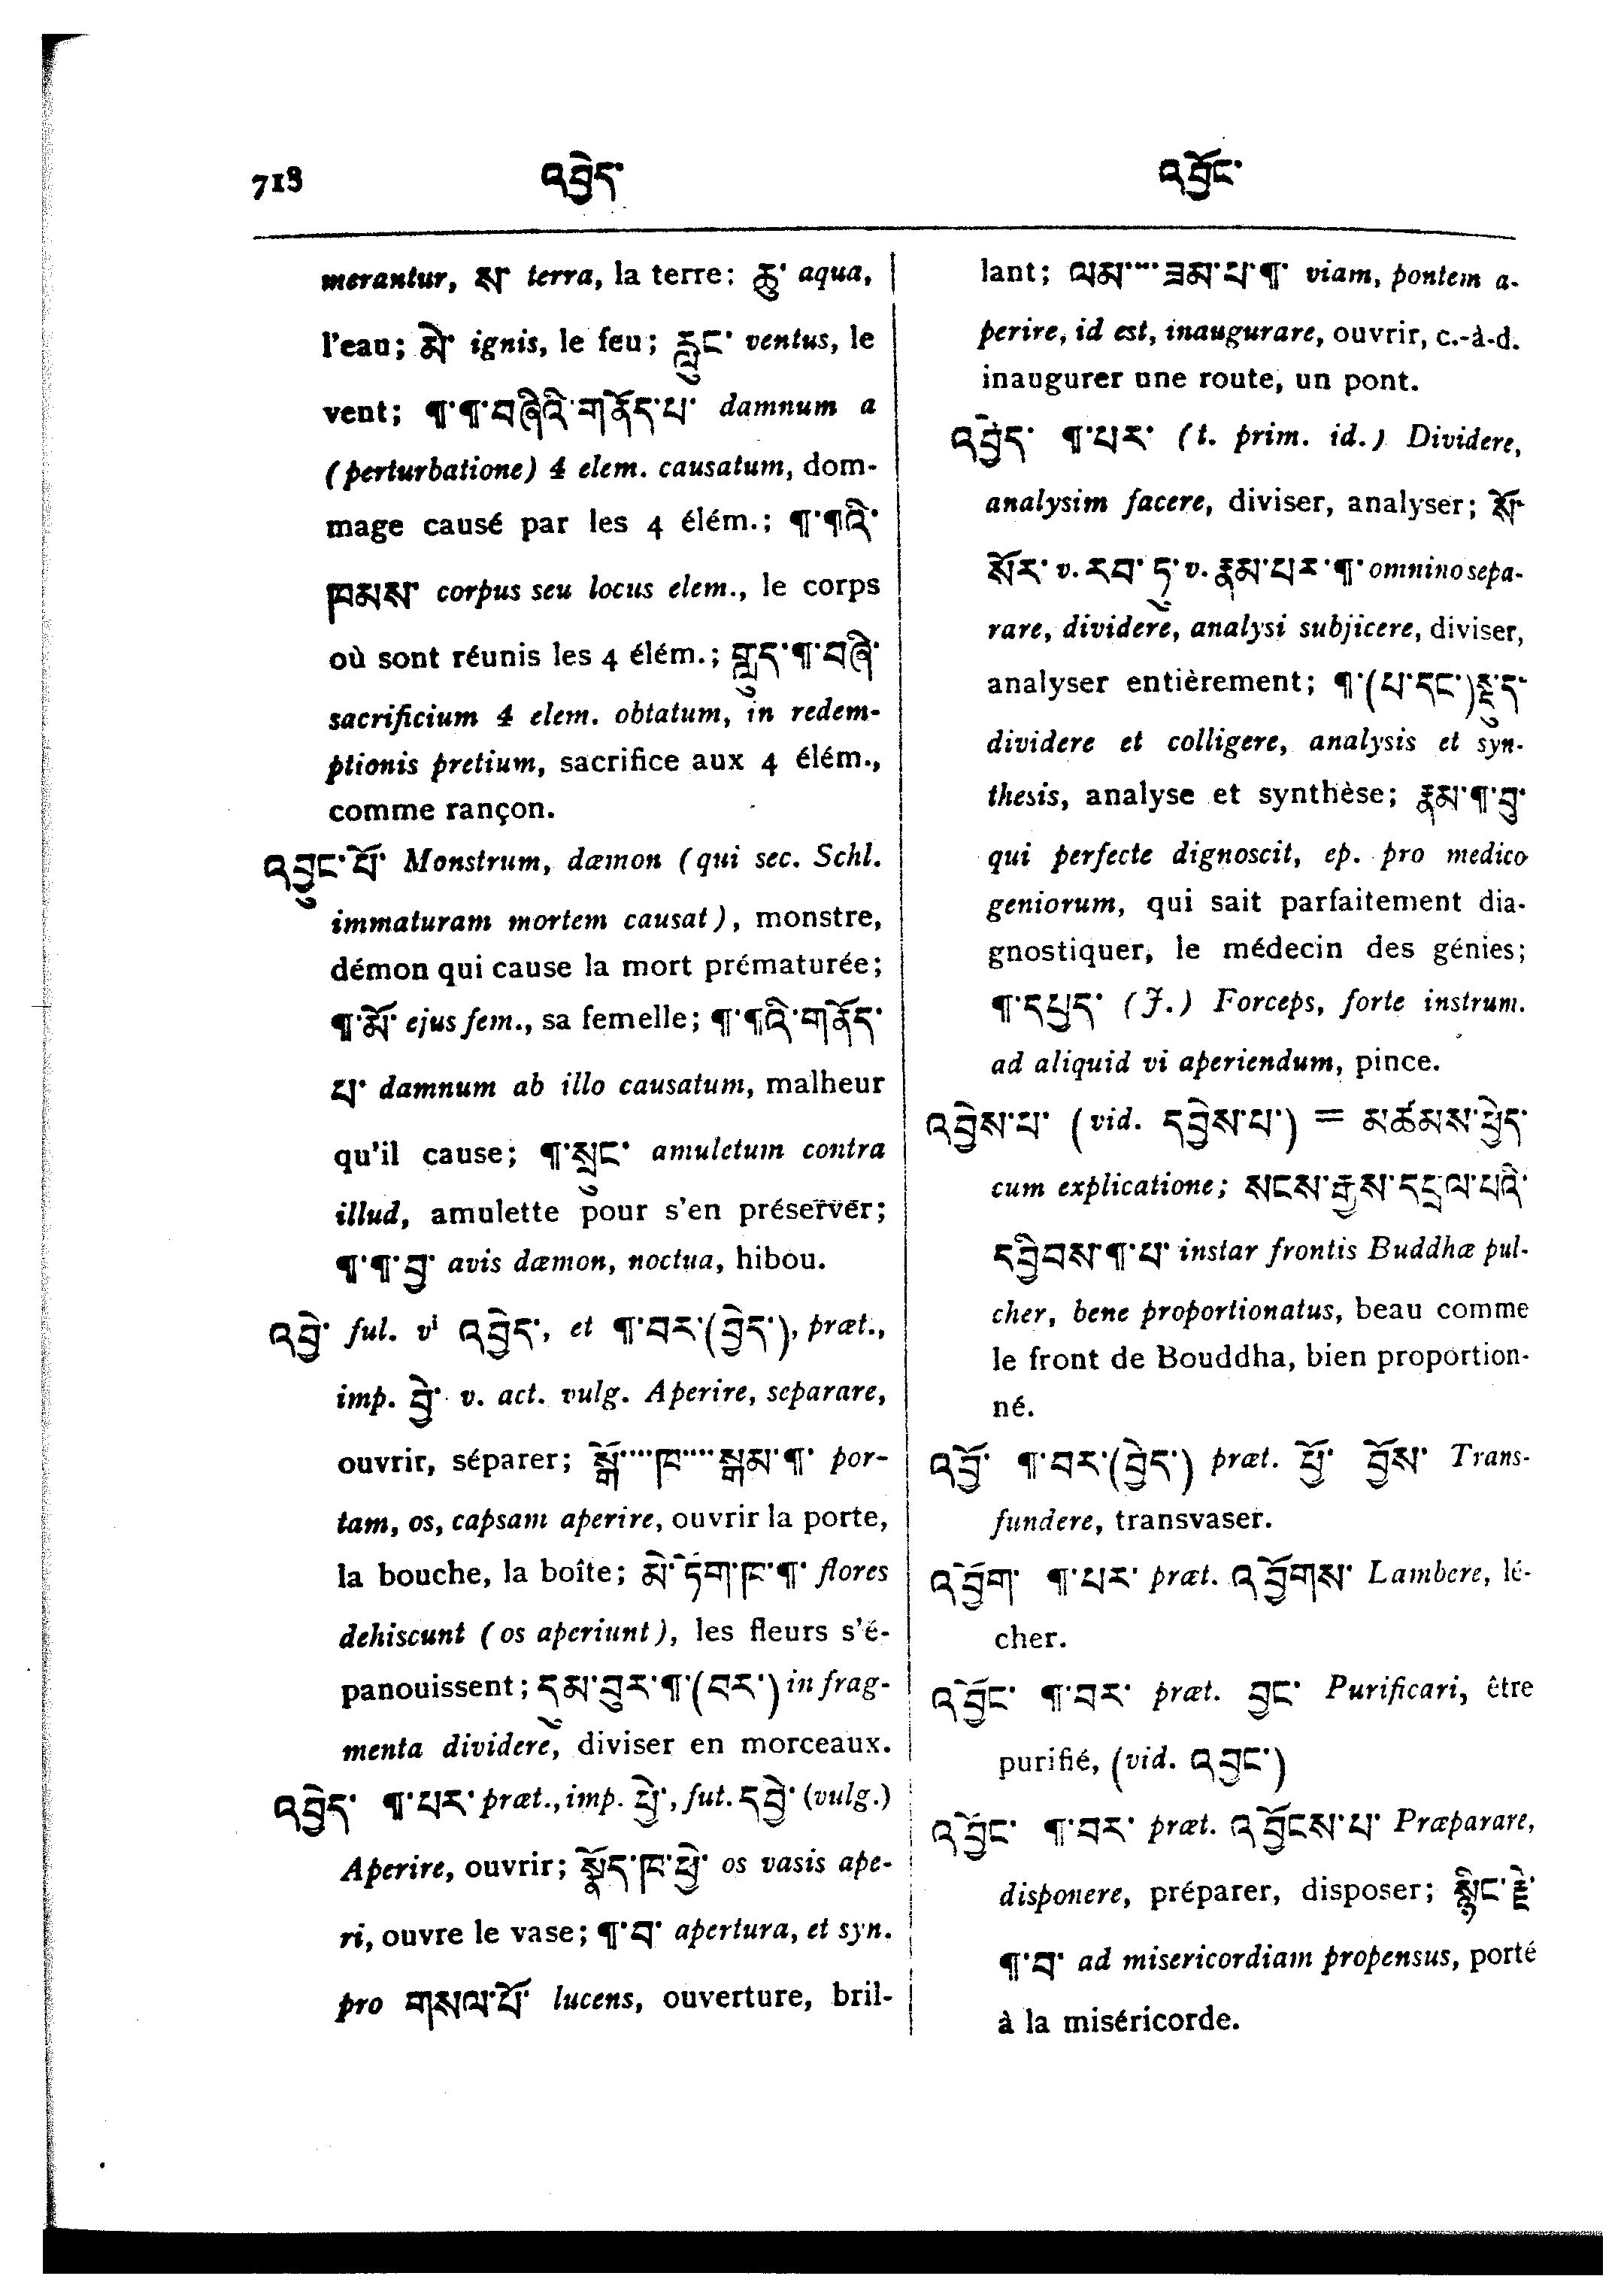 718 འབྱེད་ འབྱོང་
merantur, ས་ terra, la terre; ཆུ་ aqua,
l'eau; མེ་ ignis, le feu; རླུང་ ventus, le
vent; ¶་¶་བཞིའི་གནོད་པ་ damnum a
(perturbatione) 4 elem. causatum, dom-
mage causé par les 4 élém.; ¶་¶འི་
ཁམས་ corpus seu locus elem., le corps
où sont réunis les 4 élém.; གླུད་¶་བཞི་
sacrificium 4 elem. obtatum, in redem-
ptionis pretium, sacrifice aux 4 élém.,
comme rançon.
འབྱུང་པོ་ Monstrum, dæmon (qui sec. Schl.
immaturam mortem causat), monstre,
démon qui cause la mort prématurée;
¶་མོ་ ejus fem., sa femelle; ¶་¶འི་གནོད་
པ་ damnum ab illo causatum, malheur
qu'il cause; ¶་སྲུང་ amuletum contra
illud, amulette pour s'en préserver;
¶་¶་བྱ་ avis dæmon, noctua, hibou.
འབྱེ་ ful. vⁱ འབྱེད་, et ¶་བར་(བྱེད་), præt.,
imp. བྱེ་ v. act. vulg. Aperire, separare,
ouvrir, séparer; སྒོ་····ཁ་····སྒམ་¶་ por-
tam, os, capsam aperire, ouvrir la porte,
la bouche, la boîte; མེ་ཏོག་ཁ་¶་ flores
dehiscunt (os aperiunt), les fleurs s'é-
panouissent; དུམ་བུར་¶་(བར་) in frag-
menta dividere, diviser en morceaux.
འབྱེད་ ¶་པར་ præt., imp. ཕྱེ་, fut. དབྱེ་ (vulg.)
Aperire, ouvrir; སྣོད་ཁ་ཕྱེ་ os vasis ape-
ri, ouvre le vase; ¶་བ་ apertura, et syn.
pro གསལ་པོ་ lucens, ouverture, bril-
lant; ལམ་···ཟམ་པ་¶་ viam, pontem a-
perire, id est, inaugurare, ouvrir, c.-à-d.
inaugurer une route, un pont.
འབྱེད་ ¶་པར་ (t. prim. id.) Dividere,
analysim facere, diviser, analyser; སོ་
སོར་ v. རབ་ཏུ་ v. རྣམ་པར་¶་ omnino sepa-
rare, dividere, analysi subjicere, diviser,
analyser entièrement; ¶་(པ་དང་)རྡུད་
dividere et colligere, analysis et syn-
thesis, analyse et synthèse; རྣམ་¶་བྱ་
qui perfecte dignoscit, ep. pro medico
geniorum, qui sait parfaitement dia-
gnostiquer, le médecin des génies;
¶་དཔྱད་ (J.) Forceps, forte instrum.
ad aliquid vi aperiendum, pince.
འབྱེས་པ་ (vid. དབྱེས་པ་) = མཚམས་ཕྱེད་
cum explicatione; སངས་རྒྱས་དཔྲལ་པའི་
དབྱིབས་¶་པ་ instar frontis Buddhæ pul-
cher, bene proportionatus, beau comme
le front de Bouddha, bien proportion-
né.
འབྱོ་ ¶་བར་(བྱེད་) præt. ཕྱོ་ བྱོས་ Trans-
fundere, transvaser.
འབྱོག་ ¶་པར་ præt. འབྱོགས་ Lambere, lé-
cher.
འབྱོང་ ¶་བར་ præt. བྱང་ Purificari, être
purifié, (vid. འབྱང་)
འབྱོང་ ¶་བར་ præt. འབྱོངས་པ་ Præparare,
disponere, préparer, disposer; སྙིང་རྗེ་
¶་བ་ ad misericordiam propensus, porté
à la miséricorde.